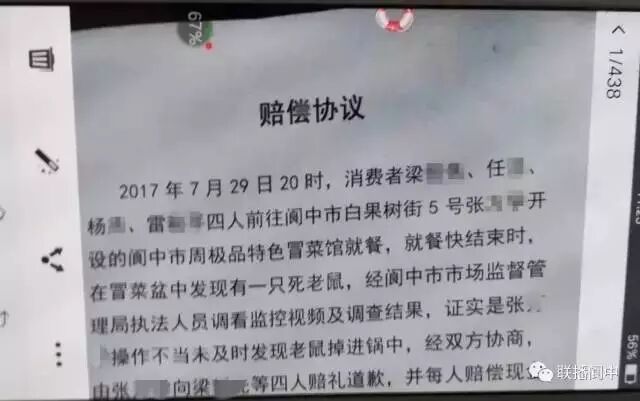 赔偿协议
2017年7月29日20时，消费者梁、任、
杨、雷等四人前往阆中市白果树街5号张开
设的阆中市周极品特色冒菜馆就餐，就餐快结束时，
在冒菜盆中发现有一只死老鼠，经阆中市市场监督管
理局执法人员调看监控视频及调查结果，证实是张
操作不当未及时发现老鼠掉进锅中，经双方协商，
由张向梁等四人赔礼道歉，并每人赔偿现
67%
1/438
56%
联播阆中